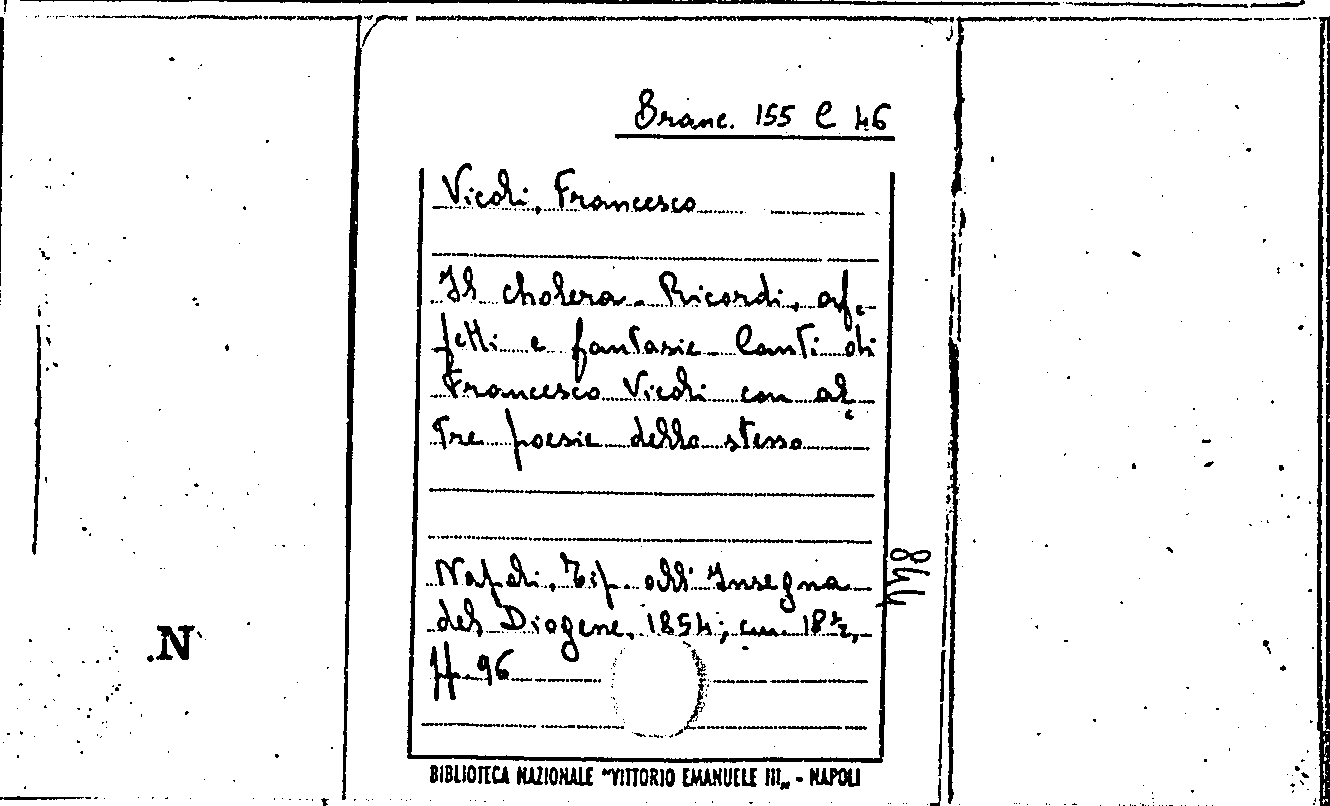 Branc. 155 C 46
Vicoli, Francesco
Il cholera. Ricordi, af-
fetti e fantasie Canti di
Francesco Vicoli con al-
tre poesie dello stesso
Napoli, Tip. all'Insegna
del Diogene, 1854; cm. 18½,
pp. 96
844
.N
BIBLIOTECA NAZIONALE "VITTORIO EMANUELE III„ - NAPOLI